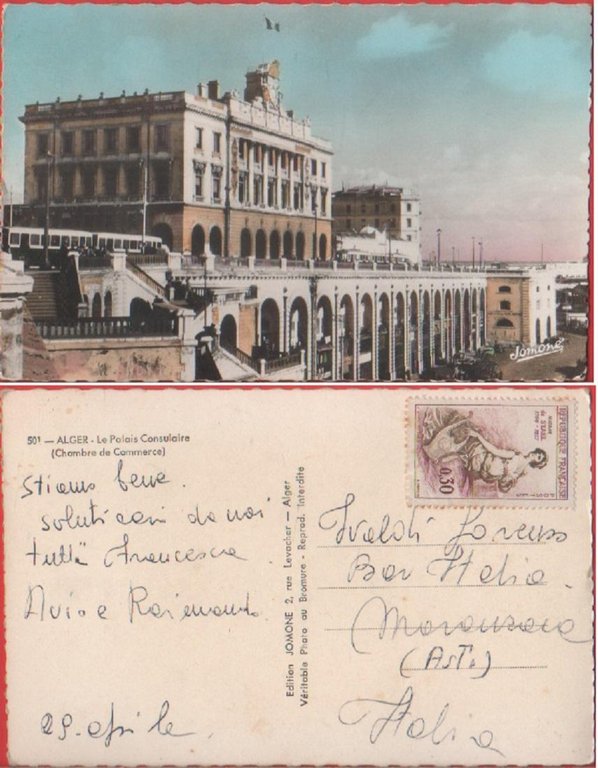 Jomone
501 — ALGER - Le Palais Consulaire
(Chambre de Commerce)
Stiamo bene.
saluti cari da noi
tutti Francesca
Avio e Raimondo
29. aprile
Edition JOMONE 2, rue Levacher — Alger
Véritable Photo au Bromure - Reprod. Interdite
MADAME
de STAEL
POSTES
0,30
REPUBLIQUE FRANÇAISE
Ivaldi Lorenzo
Bar Italia.
(Asti)
Italia